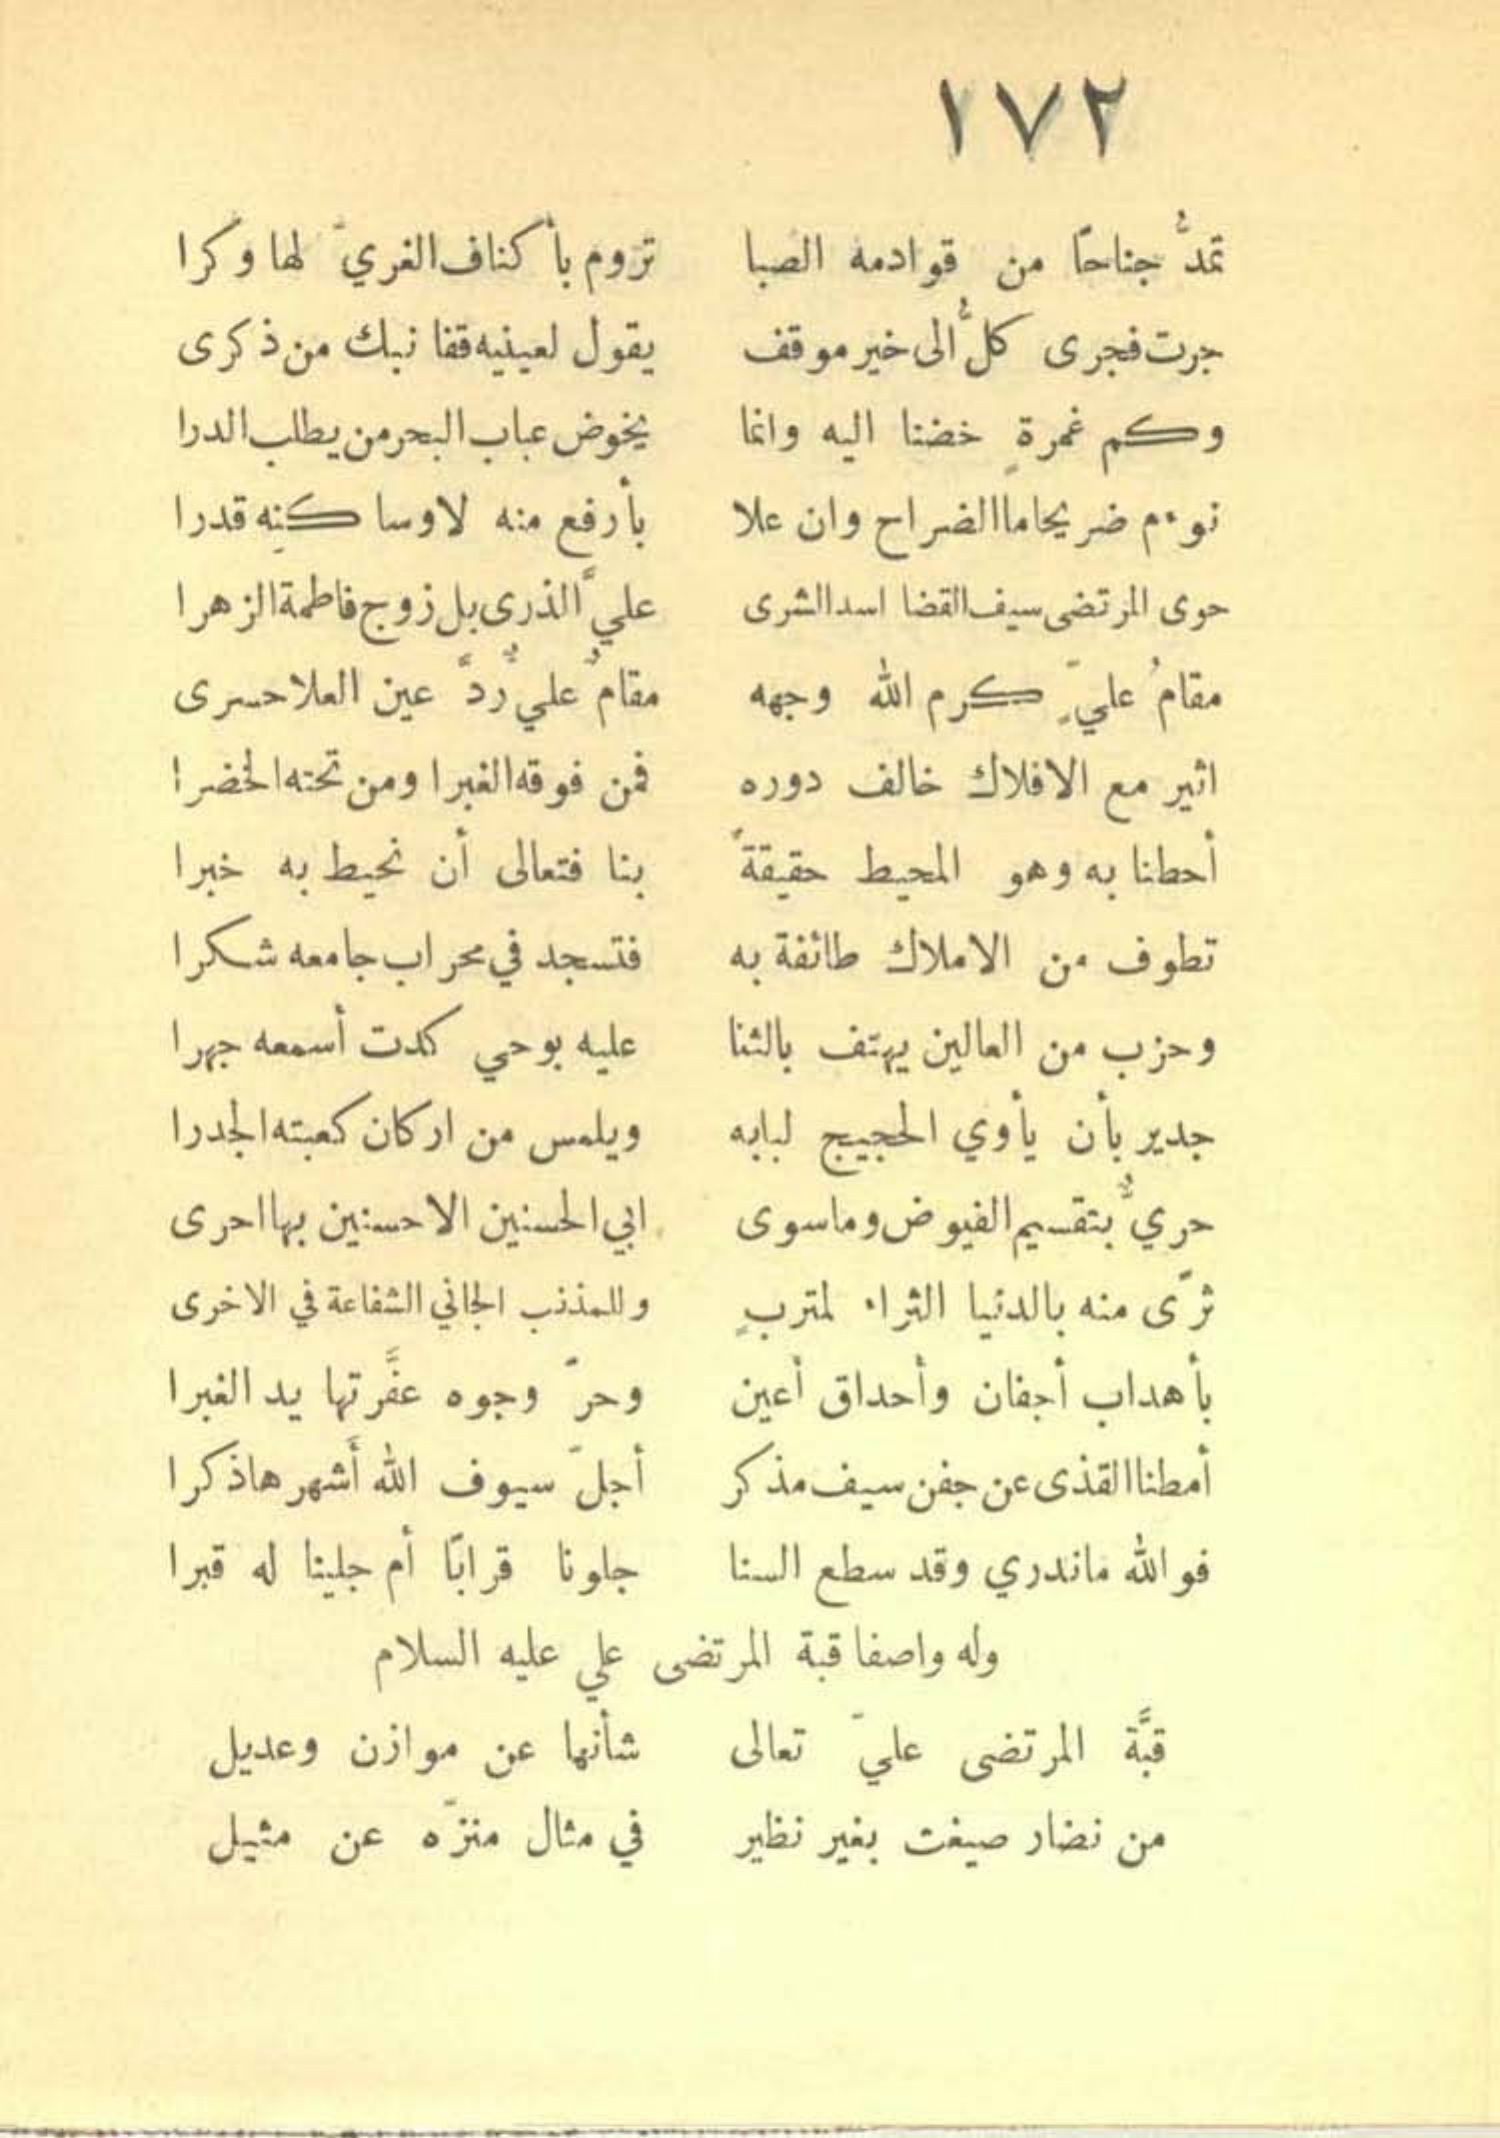 ١٧٢
تمدُّ جناحًا من قوادمه الصبا تروم بأكناف الغريّ لها وكرا
جرت فجرى كلٌّ الى خير موقف يقول لعينيه قفا نبك من ذكرى
وكم غمرةٍ خضنا اليه وانما يخوض عباب البحر من يطلب الدرا
نوءم ضريحا ما الضراح وان علا بأرفع منه لا وساكنِه قدرا
حوى المرتضى سيف القضا اسد الشرى عليَّ الذرى بل زوج فاطمة الزهرا
مقامُ عليّ ٍ كرم الله وجهه مقامٌ عليٌّ ردَّ عين العلا حسرى
اثير مع الافلاك خالف دوره فمن فوقه الغبرا ومن تحته الخضرا
أحطنا به وهو المحيط حقيقةً بنا فتعالى أن نحيط به خبرا
تطوف من الاملاك طائفة به فتسجد في محراب جامعه شكرا
وحزب من العالين يهتف بالثنا عليه بوحي كدت أسمعه جهرا
جدير بأن يأوي الحجيج لبابه ويلمس من اركان كعبته الجدرا
حريٌّ بتقسيم الفيوض وما سوى ابي الحسنين الاحسنين بها احرى
ثرّى منه بالدنيا الثراء لمتربٍ وللمذنب الجاني الشفاعة في الاخرى
بأهداب أجفان وأحداق أعين وحرّ وجوه عفَّرتها يد الغبرا
أمطنا القذى عن جفن سيف مذكر أجلّ سيوف الله أَشهرها ذكرا
فوالله ما ندري وقد سطع السنا جلونا قرابًا أم جلينا له قبرا
وله واصفا قبة المرتضى علي عليه السلام
قبَّة المرتضى عليّ تعالى شأنها عن موازن وعديل
من نضار صيغت بغير نظير في مثال منزّه عن مثيل